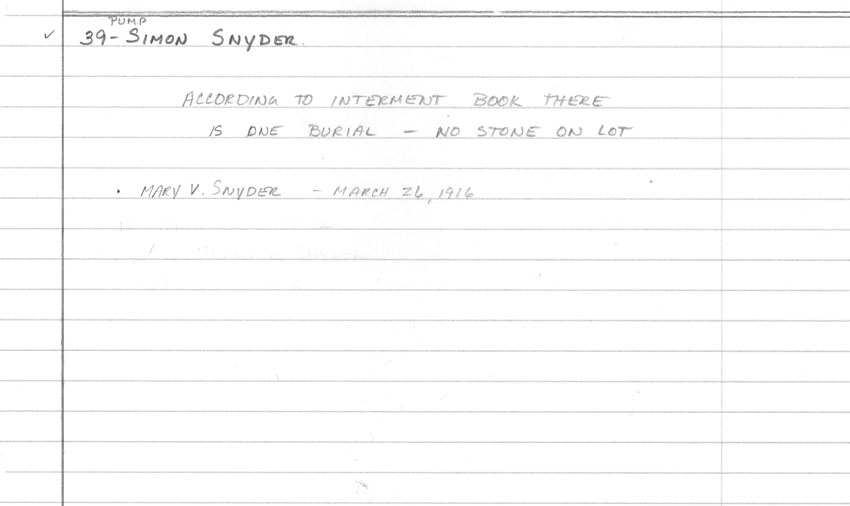 PUMP
✓ 39- SIMON SNYDER
ACCORDING TO INTERMENT BOOK THERE
IS ONE BURIAL - NO STONE ON LOT
• MARY V. SNYDER - MARCH 26, 1916